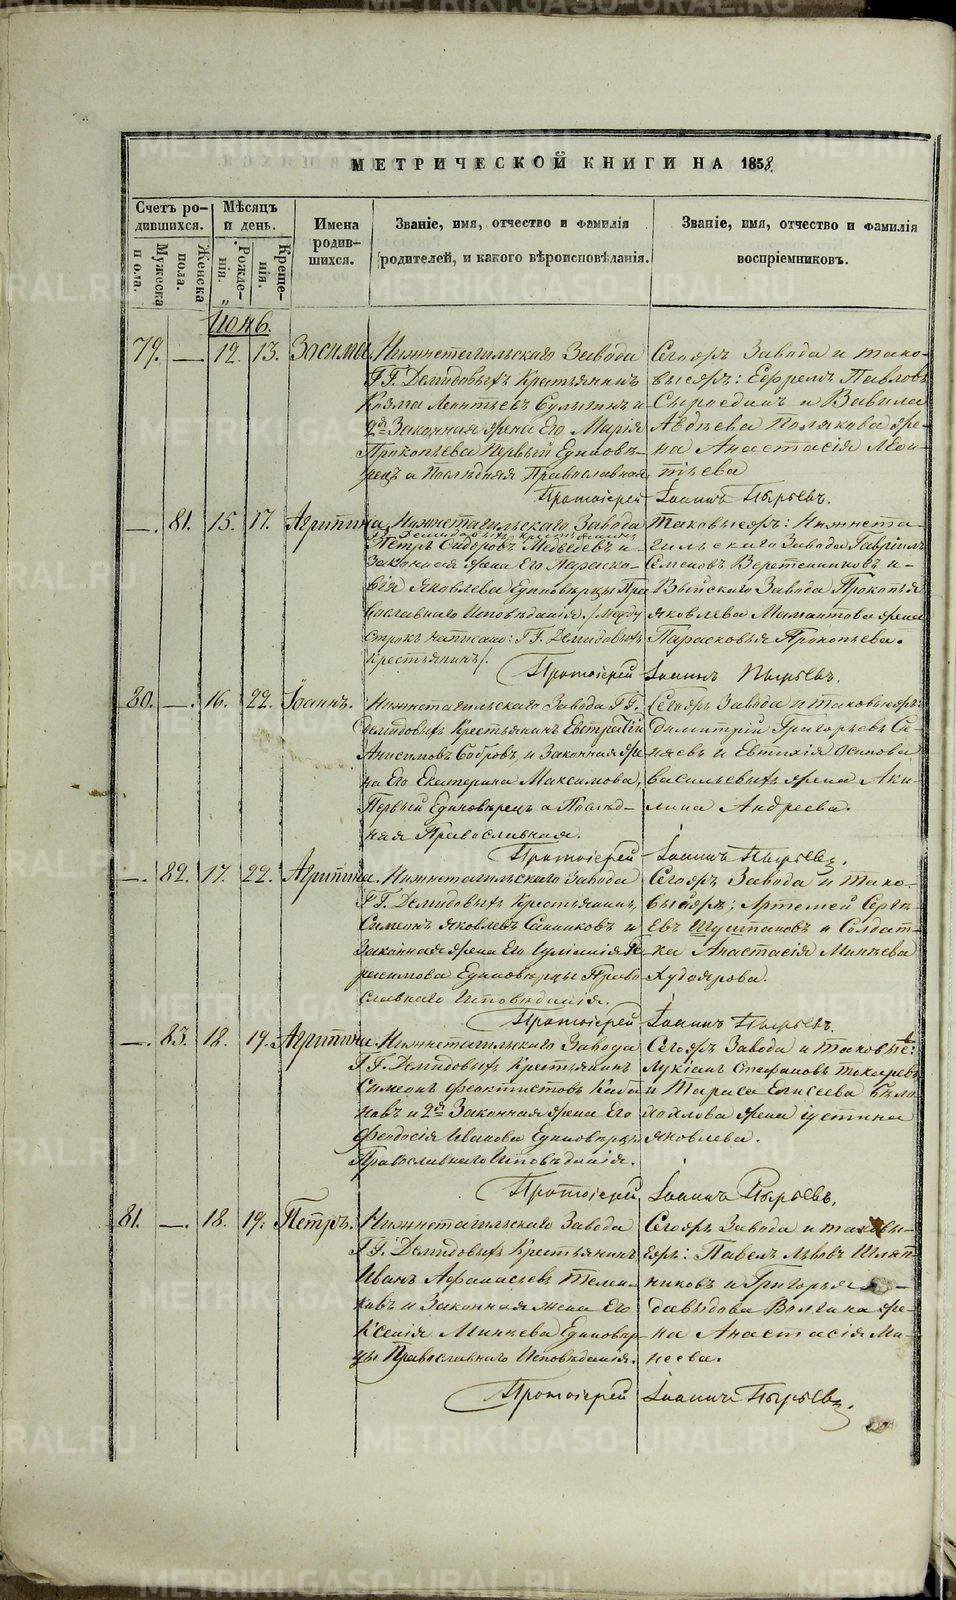 МЕТРИЧЕСКОЙ КНИГИ НА 1858.
Счетъ ро-
дившихся.
Мужеска
пола.
Женска
пола.
Мѣсяцъ
и день.
Рожде-
нія.
Креще-
нія.
Имена
родив-
шихся.
Званіе, имя, отчество и фамилія
родителей, и какого вѣроисповѣданія.
Званіе, имя, отчество и фамилія
воспріемниковъ.
79. — 12. 13. Зосима
Нижнетагильскаго Завода
ГГ. Демидовыхъ Крестьянинъ
Козма Леонтьевъ и
2я Законная жена Его Марія
Прокопьева Первый Единовѣ-
рецъ а Послѣдняя Православная
Сегожъ Завода и тако-
выежъ: Ефремъ Павловъ
Сыроединъ и Вавила
Авдѣева Полякова же-
на Анастасія Леон-
тіева
Протоіерей Іоаннъ Пырьевъ.
—. 81. 15. 17. Агрипина
Нижнетагильскаго Завода
ГГ. Демидовыхъ Крестьянинъ
Петръ Сидоровъ Медведевъ и
Законная жена Его Параско-
вія Яковлева Единовѣрцы Пра
вославнаго Исповѣданія. /Между
строкъ написано: ГГ. Демидовыхъ
Крестьянинъ/.
Таковыежъ: Нижнета-
гильскаго Завода Гавріилъ
Семеновъ Веретенниковъ и
Выйскаго Завода Прокопья
Яковлева Мамонтова жена
Парасковья Прокопьева.
Протоіерей Іоаннъ Пырьевъ.
80. —. 16. 22. Іоаннъ.
Нижнетагильскаго Завода ГГ.
Демидовыхъ Крестьянинъ Евстратій
Анисимовъ Бобровъ, и Законная же
на Его Екатерина Максимова,
Первый Единовѣрецъ а Послѣд-
няя Православная.
Сегожъ Завода и таковыежъ:
Димитрій Григорьевъ Си-
няевъ и Евтихія Осипова
Васильевыхъ жена Аки-
лина Андреева.
Протоіерей Іоаннъ Пырьевъ.
—. 82. 17. 22. Агрипина.
Нижнетагильскаго Завода
ГГ. Демидовыхъ Крестьянинъ,
Симеонъ Яковлевъ Санниковъ и
Законная жена Его Іуліанія Ге
расимова Единовѣрцы Право
славнаго Исповѣданія.
Сегожъ Завода и тако-
выйжъ; Артемей Сергѣ-
евъ Шустановъ и Солдат-
ка Анастасія Минѣева
Худоярова.
Протоіерей Іоаннъ Пырьевъ.
—. 83. 18. 19. Агрипина.
Нижнетагильскаго Завода
ГГ. Демидовыхъ Крестьянинъ
Симеонъ Феоктистовъ
новъ и 2я Законная жена Его
Феодосія Иванова Единовѣрцы
Православнаго Исповѣданія.
Сегожъ Завода и таковые:
Лукіанъ Стефановъ Токаревъ
и Тараса Елисеева Бѣло
жена Іустина
Яковлева.
Протоіерей Іоаннъ Пырьевъ.
81. —. 18. 19. Петръ.
Нижнетагильскаго Завода
ГГ. Демидовыхъ Крестьянинъ
Иванъ Афанасьевъ Телен-
ковъ и Законная жена Его
Ксенія Минѣева Единовѣр-
цы Православнаго Исповѣданія.
Сегожъ Завода и таковы-
ежъ: Павелъ Львовъ Шляп-
никовъ и Григорья
Давыдова Волгина же-
на Анастасія Ми-
неева.
Протоіерей Іоаннъ Пырьевъ.
METRIKI.GASO-URAL.RU